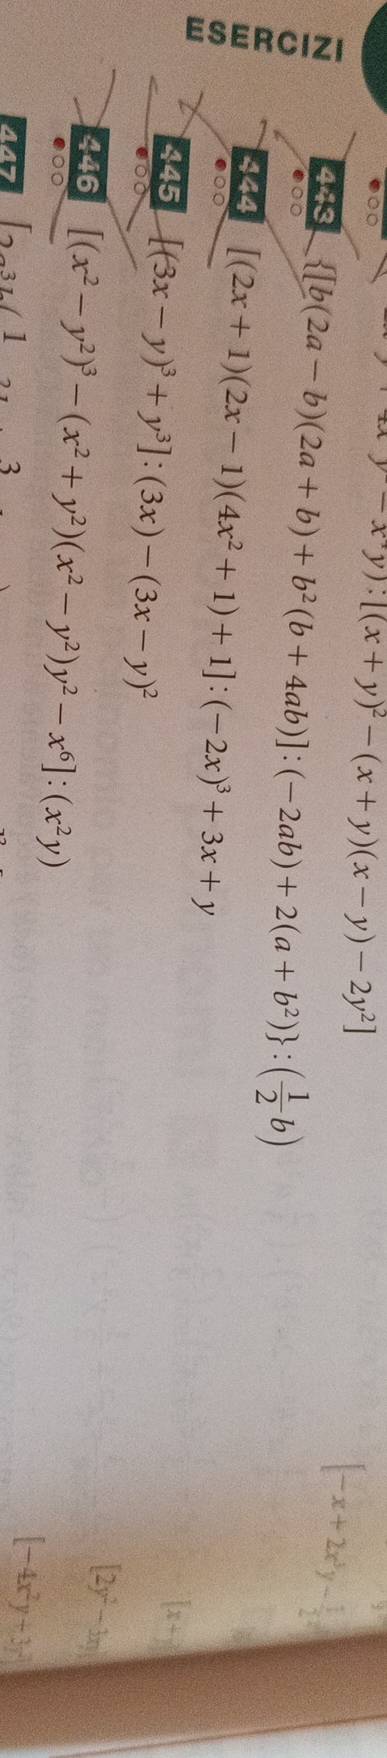 ESERCIZI
− x⁴y) : [(x + y)² − (x + y)(x − y) − 2y²]
[−x + 2x³y −
443 {[b(2a − b)(2a + b) + b²(b + 4ab)] : (−2ab) + 2(a + b²)} : (1/2 b)
444 [(2x + 1)(2x − 1)(4x² + 1) + 1] : (−2x)³ + 3x + y
[x +
445 [(3x − y)³ + y³] : (3x) − (3x − y)²
[2y² − 3xy]
446 [(x² − y²)³ − (x² + y²)(x² − y²)y² − x⁶] : (x²y)
[−4x²y + 3y³]
447